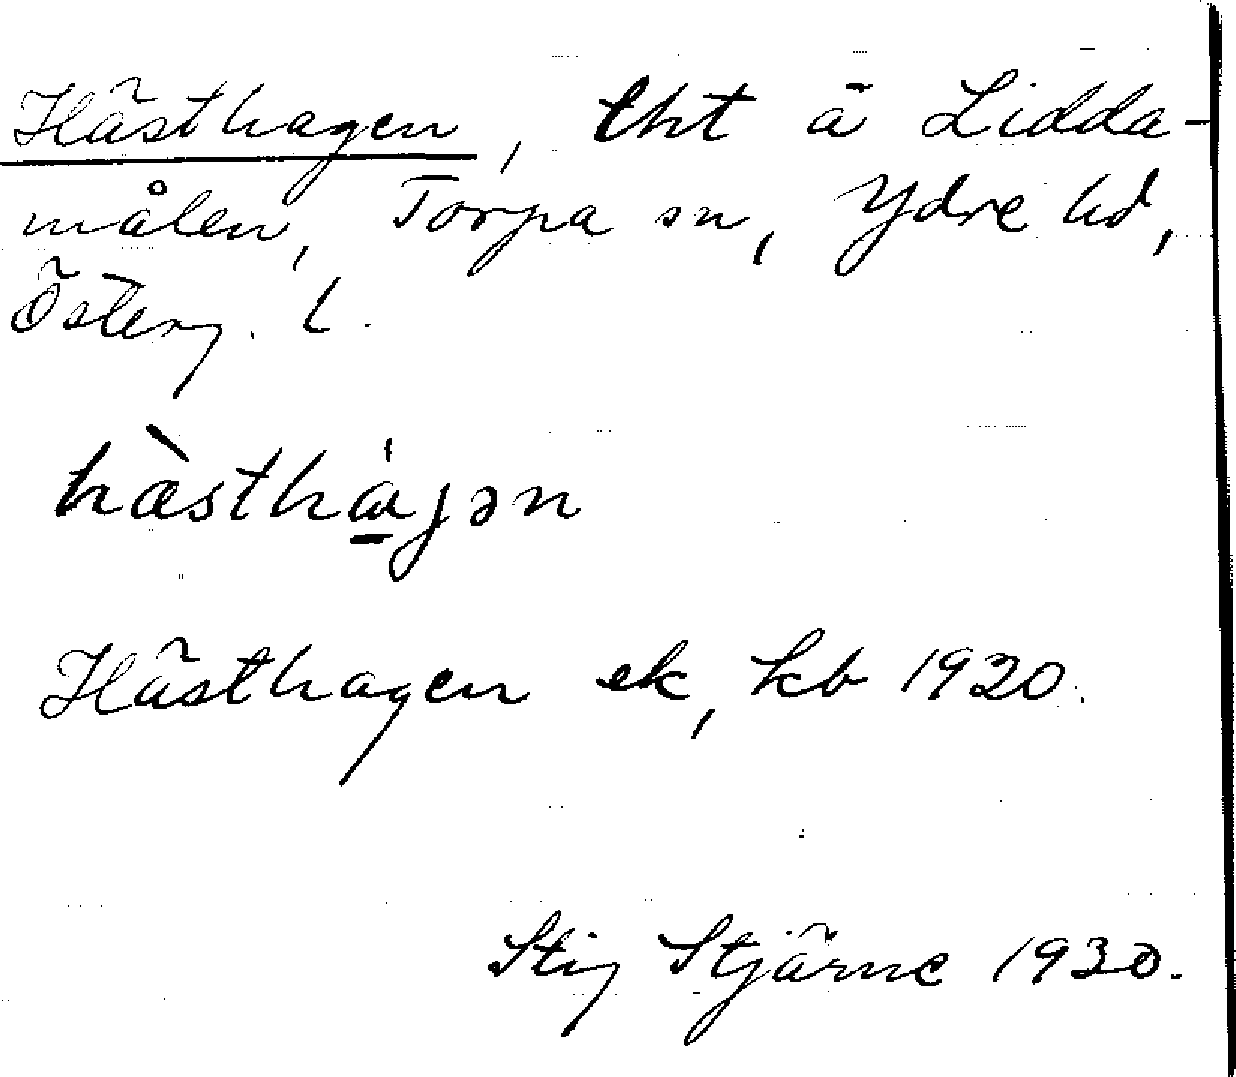 Hästhagen, lht å Lidda-
målen, Torpa sn, Ydre hd,
Österg. l.
hæ̀sthàgən
Hästhagen ek, kb 1920.
Stig Stjärne 1930.